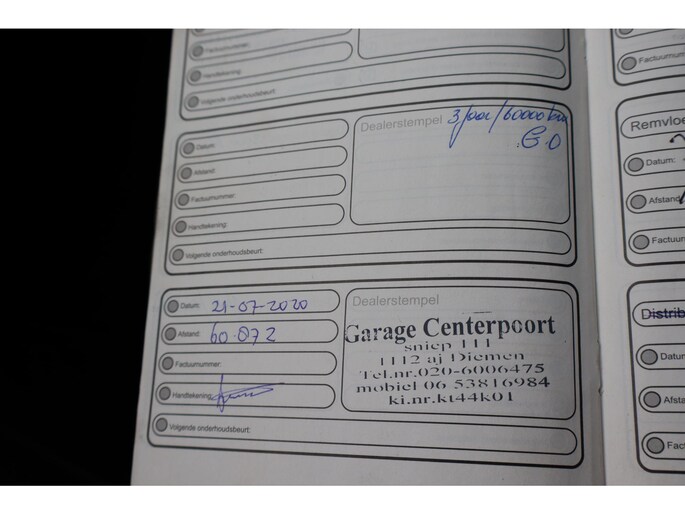 Factuurnummer:
Handtekening:
Volgende onderhoudsbeurt:
Datum:
Afstand:
Factuurnummer:
Handtekening:
Volgende onderhoudsbeurt:
Dealerstempel
3 jaar/60000 km
G.O
Datum: 21-07-2020
Afstand: 60.072
Factuurnummer:
Handtekening:
Volgende onderhoudsbeurt:
Dealerstempel
Garage Centerpoort
sniep 111
1112 aj Diemen
Tel.nr.020-6006475
mobiel 06 53816984
ki.nr.kt44k01
Factuurnum
Remvloe
Datum:
Afstand
Factuu
Distrib
Datu
Afsta
Fac